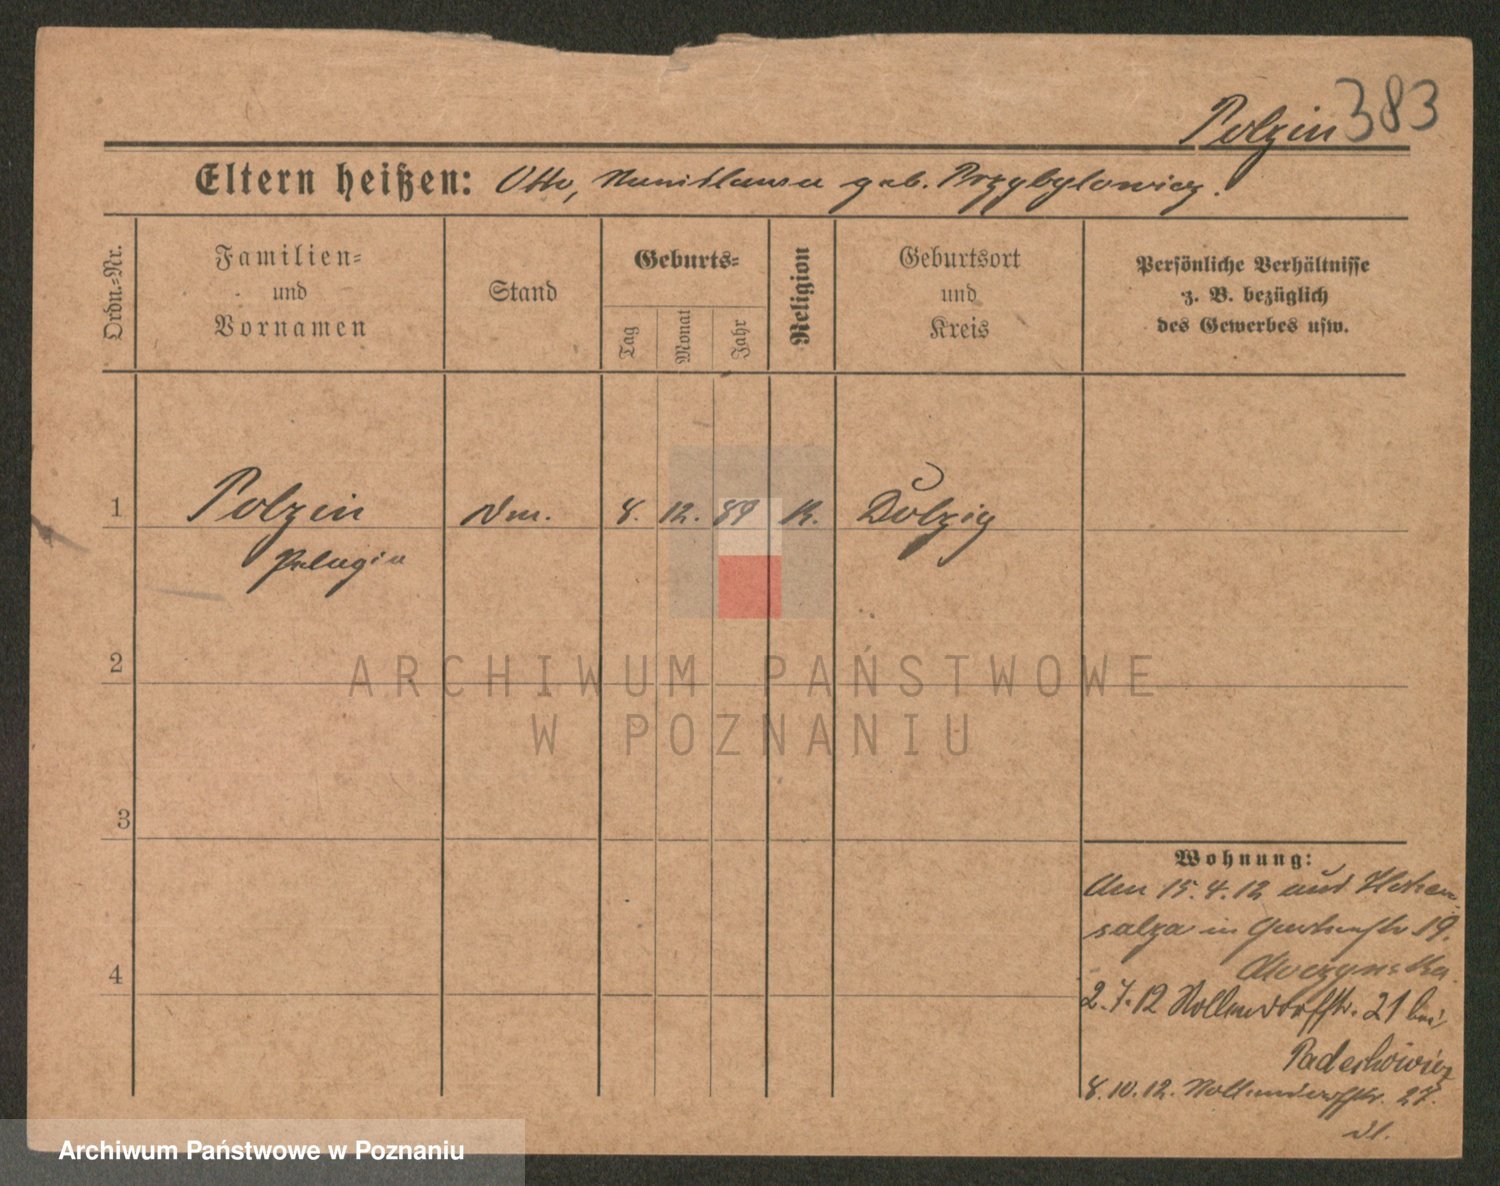 Polzin 383
Eltern heißen: Otto, Stanislawa geb. Przybylowicz.
Ordn.-Nr.
Familien-
und
Vornamen
Stand
Geburts-
Tag
Monat
Jahr
Religion
Geburtsort
und
Kreis
Persönliche Verhältnisse
z. B. bezüglich
des Gewerbes usw.
1 Polzin 8. 12. 89 k. Dolzig
Pelagia
2
3
4
Wohnung:
Am 15.4.12 aus Hohen-
salza in 19.
2.7.12 Nollendorfstr. 21 bei
8.10.12. Nollendorfstr. 27.
ARCHIWUM PAŃSTWOWE
W POZNANIU
Archiwum Państwowe w Poznaniu